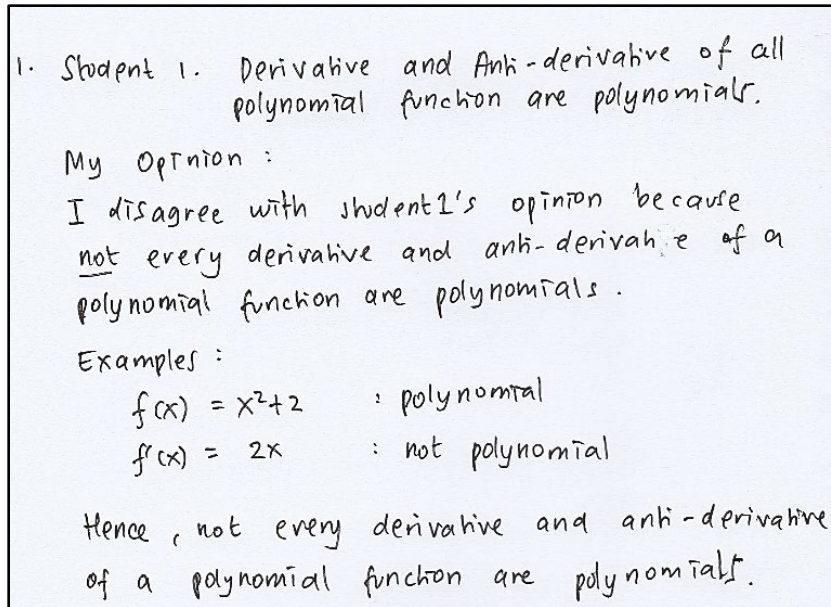 1. Student 1. Derivative and Anti-derivative of all
polynomial function are polynomials.
My Opinion :
I disagree with student 1's opinion because
not every derivative and anti-derivative of a
polynomial function are polynomials.
Examples :
f(x) = x²+2 : polynomial
f'(x) = 2x : not polynomial
Hence, not every derivative and anti-derivative
of a polynomial function are polynomials.